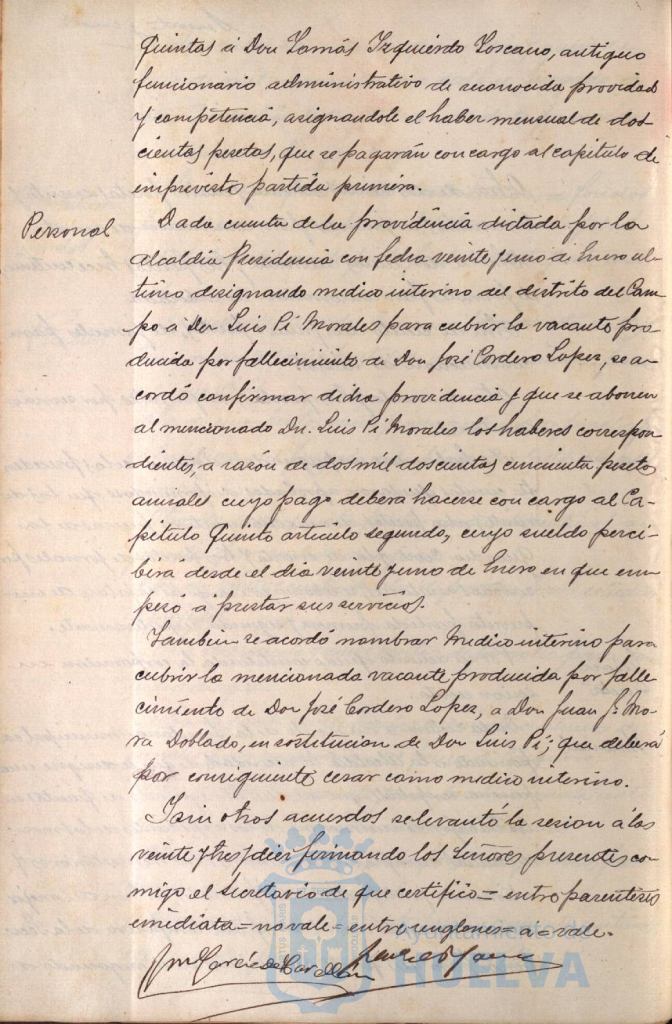 Quintas á Don Tomás Izquierdo Toscano, antiguo
funcionario administrativo de reconocida providad
y competencia, asignandole el haber mensual de dos-
cientas pesetas, que se pagarán con cargo al capitulo de
imprevisto partida primera.
Personal
Dada cuenta de la providencia dictada por la
alcaldia Presidencia con fecha veinte y uno de Enero ul-
timo designando medico interino del distrito del Cam-
po á Don Luis Pí Morales para cubrir la vacante pro-
ducida por fallecimiento de Don José Cordero Lopez, se a-
cordó confirmar dicha providencia y que se abonen
al mencionado Dn. Luis Pí Morales los haberes correspon-
dientes, a razón de dos mil doscientas cincuenta pesetas
anuales cuyo pago deberá hacerse con cargo al Ca-
pitulo Quinto articulo segundo, cuyo sueldo perci-
birá desde el dia veinte y uno de Enero en que em-
pezó á prestar sus servicios.
Tambien se acordó nombrar Medico interino para
cubrir la mencionada vacante producida por falle-
cimiento de Don José Cordero Lopez, a Don Juan J. Mo-
ra Doblado, en sostitucion de Don Luis Pí; que deberá
por consiguiente cesar como medico interino.
Y sin otros acuerdos se levantó la sesion á las
veinte y tres y diez firmando los Señores presentes co-
migo el Secretario de que certifico = entre parentesis
inmediata = no vale = entre renglones = a = vale.
Ayuntamiento de
HUELVA